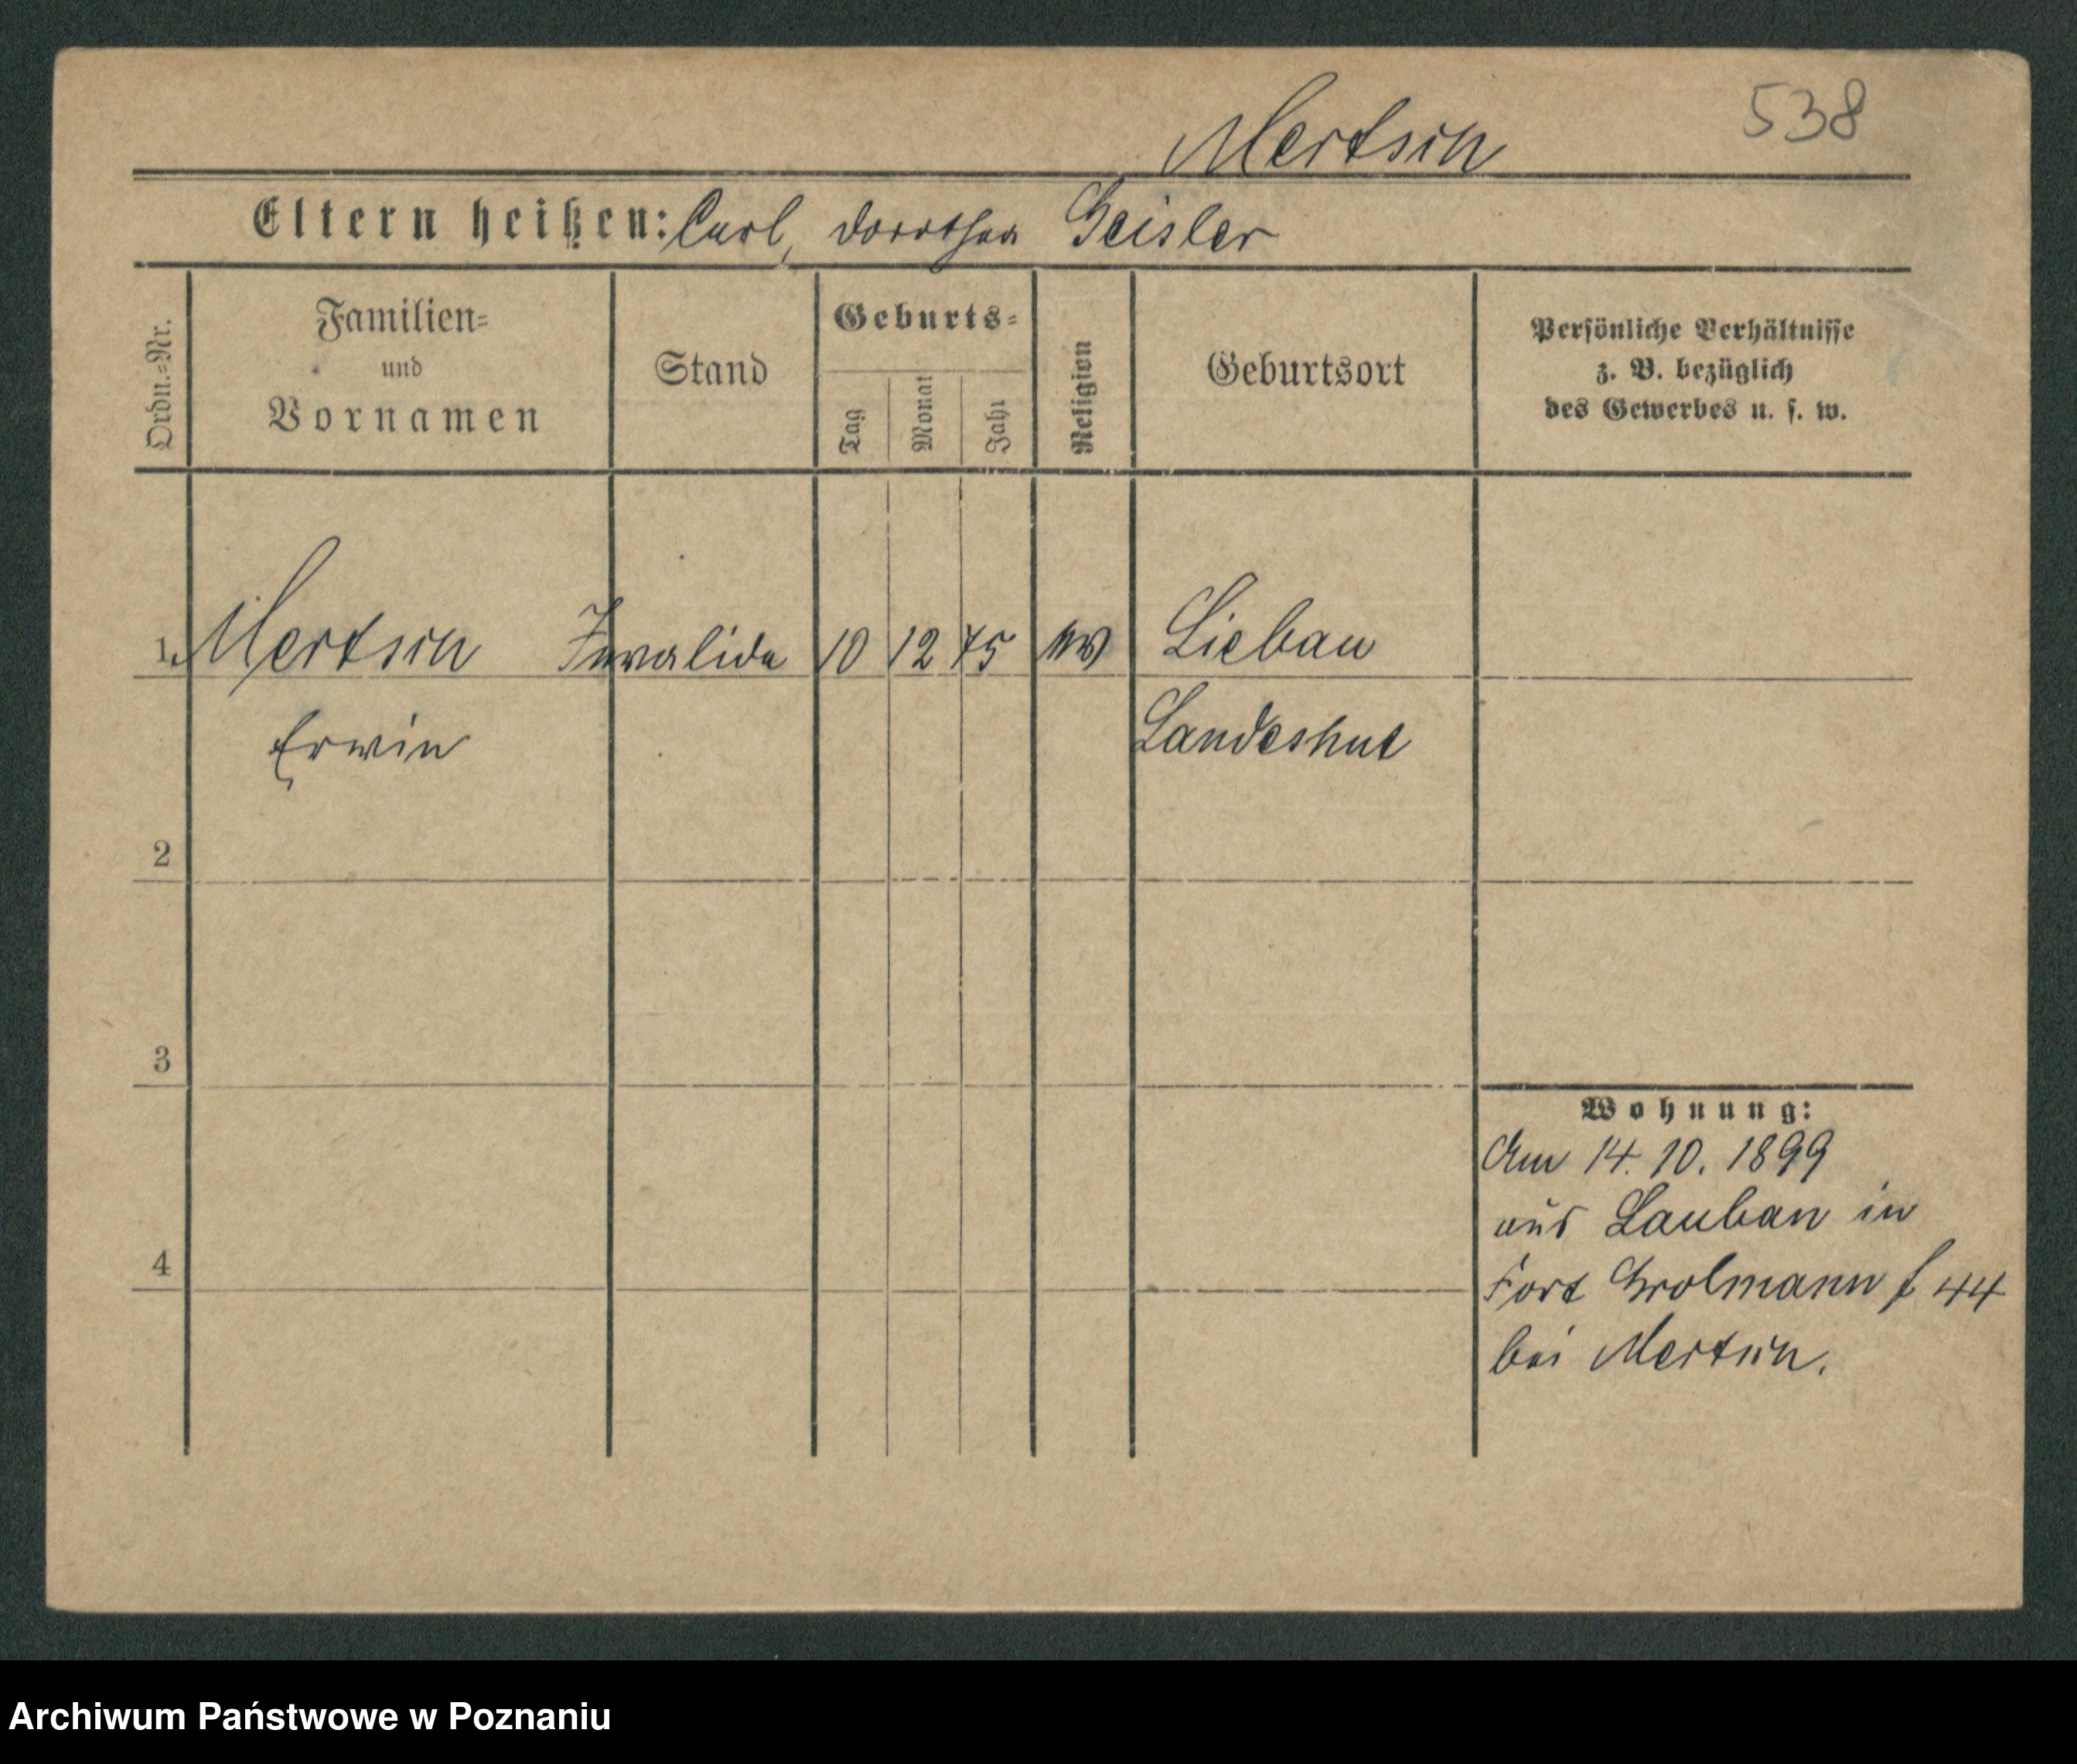 538
Mertsin
Eltern heißen: Carl, Dorothea Geisler
Ordn.=Nr.
Familien=
und
Vornamen
Stand
Geburts=
Tag
Monat
Jahr
Religion
Geburtsort
Persönliche Verhältnisse
z. B. bezüglich
des Gewerbes u. s. w.
1 Mertsin Invalide 10 12 75 Liebau
Erwin Landeshut
2
3
4
Wohnung:
Am 14. 10. 1899
aus Lauban in
Fort Grolmann f 44
bei Mertsin.
Archiwum Państwowe w Poznaniu